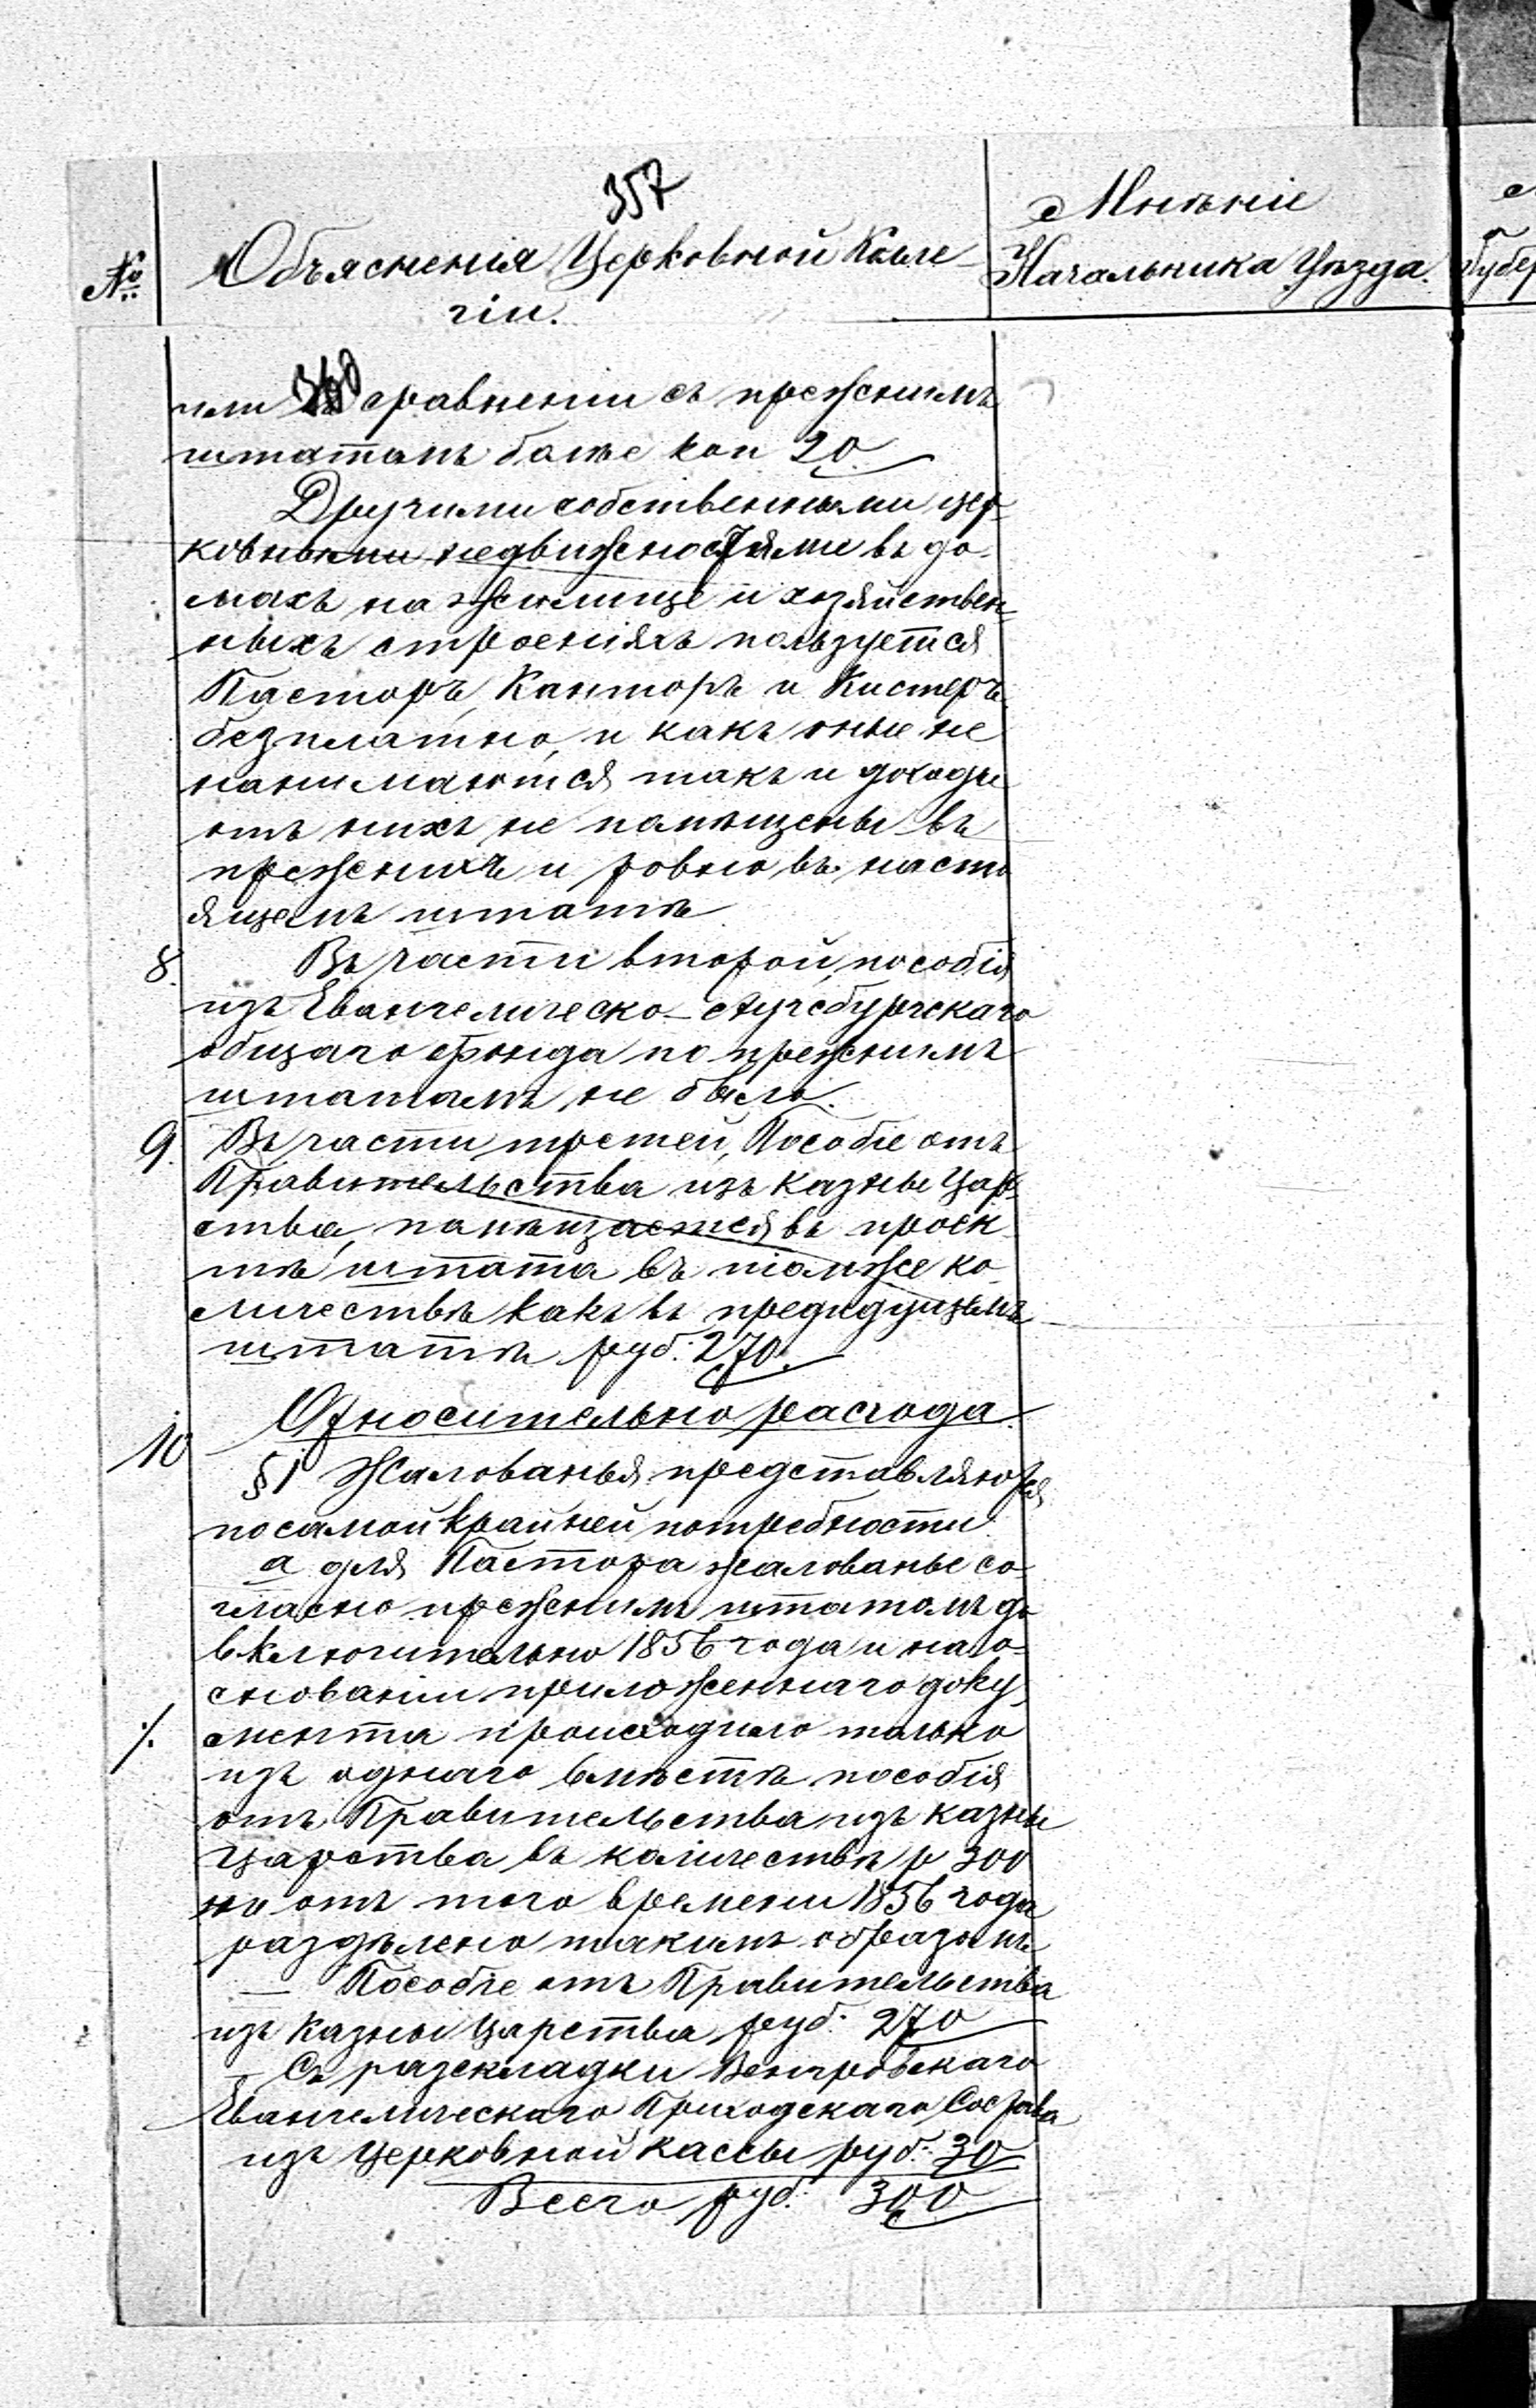 357
№ Объясненія Церковной Колле-
гіи.
Мнѣніе
Начальника Уѣзда.
Губер
или сравненіи съ прежнимъ
штатамъ болѣе коп 20
Другими собственными цер-
ковными недвижностями въ до-
махъ на жилище и хозяйствен-
ныхъ строеніяхъ пользуется
Пасторъ, Канторъ и Кистеръ
безплатно, и какъ оные не
нанимаются такъ и доходы
отъ нихъ не помѣщены въ
прежнихъ и ровно въ насто
ящемъ штатѣ
8. Въ части второй, пособія
изъ Евангелическо-Аугсбургскаго
общаго фонда по прежнимъ
штатамъ не было.
9. Въ части третей, Пособіе отъ
Правительства изъ казны Цар-
ства, помѣщается въ проек-
тѣ штата въ томже ко-
личествѣ какъ въ предидущемъ
штатѣ руб: 270.
Относительно расхода.
10 §1 Жалованья представляются
по самой крайней потребности
а для Пастора жалованье со-
гласно прежнимъ штатомъ до
включительно 1856 года и на о-
снованіи приложеннаго доку-
./. мента происходило только
изъ однаго вмѣстѣ пособія
отъ Правительства изъ казны
Царства въ количествѣ р 300
но отъ того времени 1856 года
раздѣлено такимъ образомъ
— Пособіе отъ Правительства
изъ Казны Царства руб: 270
— Съ разскладки Венгровскаго
Евангелическаго Приходскаго Состава
изъ Церковной кассы руб: 30
Всего руб: 300